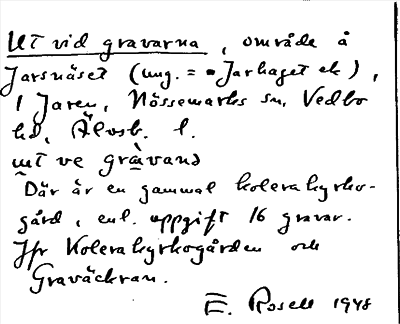 Ut vid gravarna, område å
Jarsnäset (ung. = Jarhaget ek),
1 Jaren, Nössemarks sn, Vedbo
hd, Älvsb. l.
ut ve gràvanə
Där är en gammal kolerakyrko-
gård, enl. uppgift 16 gravar.
Jfr Kolerakyrkogården och
Graväckran.
E. Rosell 1948